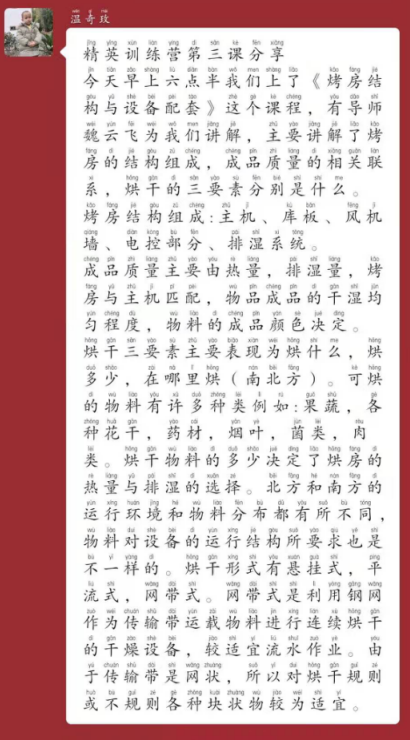 温奇玫
精英训练营第三课分享
今天早上六点半我们上了《烤房结
构与设备配套》这个课程，有导师
魏云飞为我们讲解，主要讲解了烤
房的结构组成，成品质量的相关联
系，烘干的三要素分别是什么。
烤房结构组成:主机、库板、风机
墙、电控部分、排湿系统。
成品质量主要由热量，排湿量，烤
房与主机匹配，物品成品的干湿均
匀程度，物料的成品颜色决定。
烘干三要素主要表现为烘什么，烘
多少，在哪里烘（南北方）。可烘
的物料有许多种类例如:果蔬，各
种花干，药材，烟叶，菌类，肉
类。烘干物料的多少决定了烘房的
热量与排湿的选择。北方和南方的
运行环境和物料分布都有所不同，
物料对设备的运行结构所要求也是
不一样的。烘干形式有悬挂式，平
流式，网带式。网带式是利用钢网
作为传输带运载物料进行连续烘干
的干燥设备，较适宜流水作业。由
于传输带是网状，所以对烘干规则
或不规则各种块状物较为适宜。